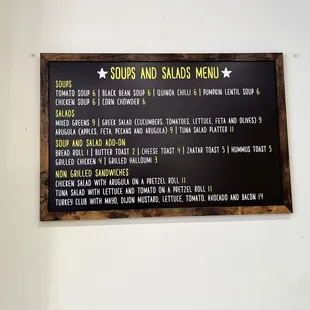 SOUPS AND SALADS MENU
SOUPS
TOMATO SOUP 6 | BLACK BEAN SOUP 6 | QUINOA CHILI 6 | PUMPKIN LENTIL SOUP 6
CHICKEN SOUP 6 | CORN CHOWDER 6
SALADS
MIXED GREENS 9 | GREEK SALAD (CUCUMBERS, TOMATOES, LETTUCE, FETA AND OLIVES) 9
ARUGULA (APPLES, FETA, PECANS AND ARUGULA) 9 | TUNA SALAD PLATTER 11
SOUP AND SALAD ADD-ON
BREAD ROLL 1 | BUTTER TOAST 2 | CHEESE TOAST 4 | ZAATAR TOAST 5 | HUMMUS TOAST 5
GRILLED CHICKEN 4 | GRILLED HALLOUMI 3
NON GRILLED SANDWICHES
CHICKEN SALAD WITH ARUGULA ON A PRETZEL ROLL 11
TUNA SALAD WITH LETTUCE AND TOMATO ON A PRETZEL ROLL 11
TURKEY CLUB WITH MAYO, DIJON MUSTARD, LETTUCE, TOMATO, AVOCADO AND BACON 14